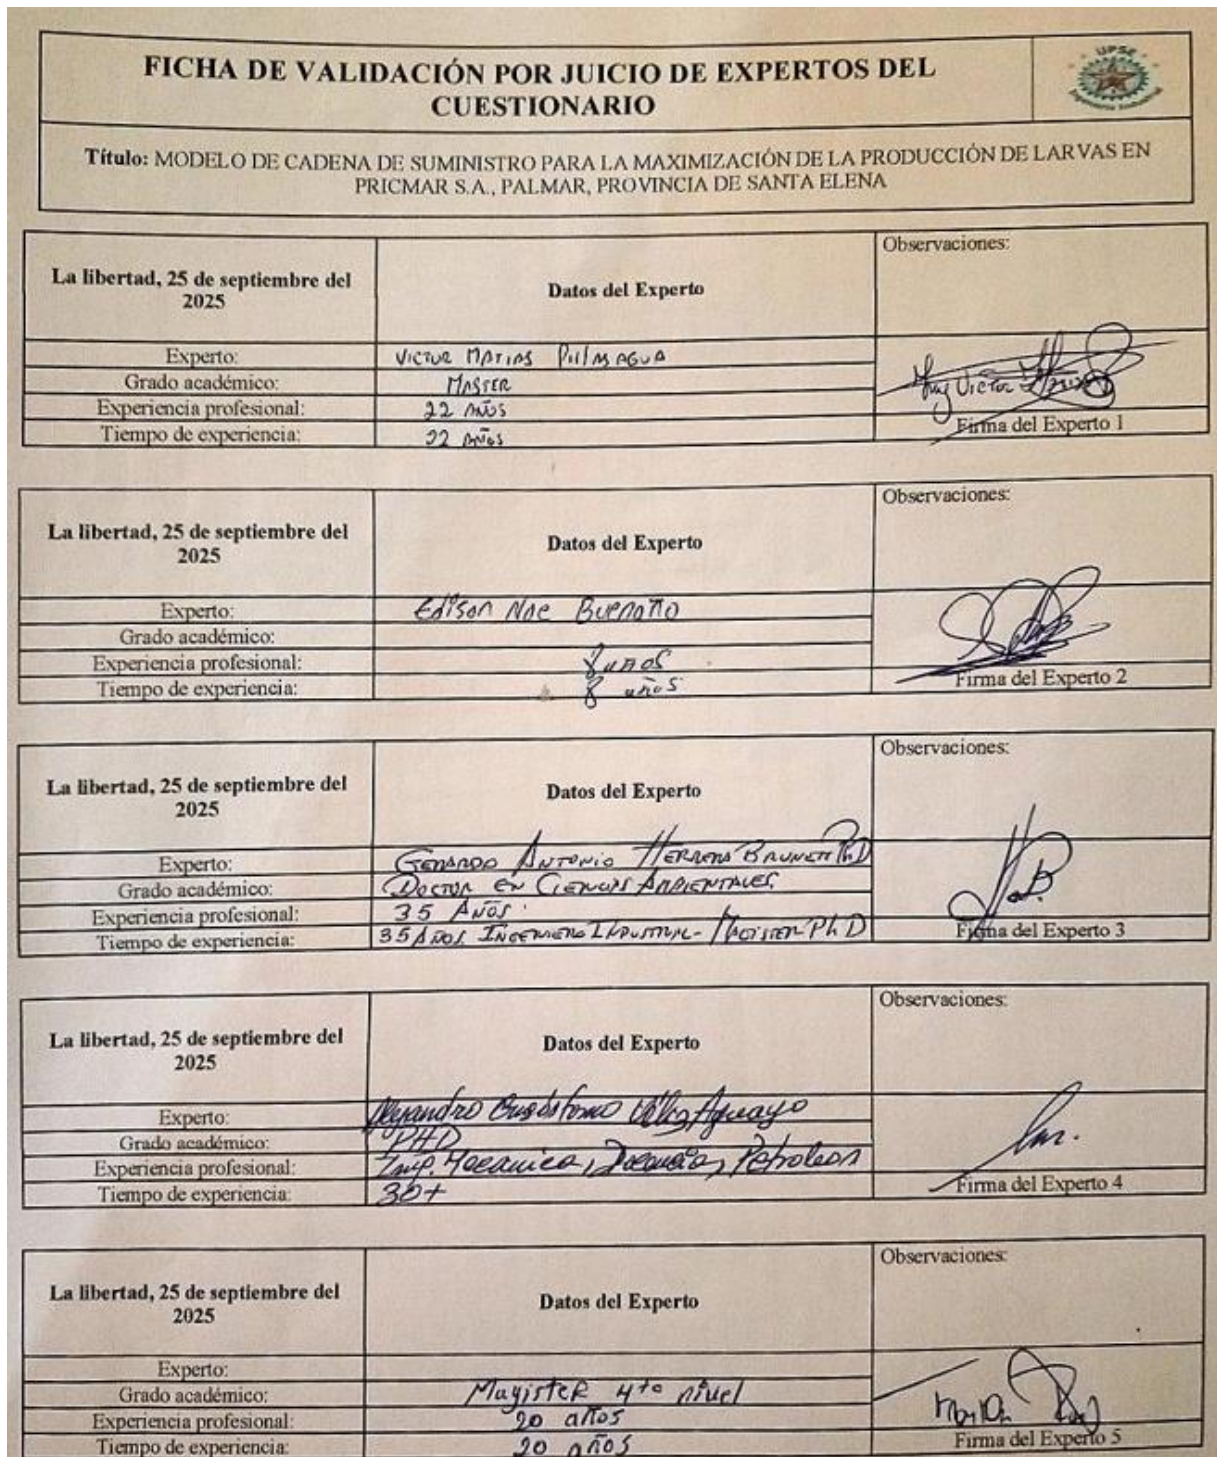 FICHA DE VALIDACIÓN POR JUICIO DE EXPERTOS DEL
CUESTIONARIO
UPSE
Ingeniería Industrial
Título: MODELO DE CADENA DE SUMINISTRO PARA LA MAXIMIZACIÓN DE LA PRODUCCIÓN DE LARVAS EN
PRICMAR S.A., PALMAR, PROVINCIA DE SANTA ELENA
La libertad, 25 de septiembre del
2025
Datos del Experto
Observaciones:
Experto: VICTOR MATIAS PILLASAGUA
Grado académico: MASTER
Experiencia profesional: 22 AÑOS
Tiempo de experiencia: 22 AÑOS
Firma del Experto 1
La libertad, 25 de septiembre del
2025
Datos del Experto
Observaciones:
Experto: Edison Noe Buenaño
Grado académico:
Experiencia profesional: 8 años
Tiempo de experiencia: 8 años
Firma del Experto 2
La libertad, 25 de septiembre del
2025
Datos del Experto
Observaciones:
Experto: GERARDO ANTONIO HERRERA BRUNETT PhD
Grado académico: DOCTOR EN CIENCIAS AMBIENTALES
Experiencia profesional: 35 AÑOS
Tiempo de experiencia: 35 AÑOS INGENIERO INDUSTRIAL - MAGISTER PhD
Firma del Experto 3
La libertad, 25 de septiembre del
2025
Datos del Experto
Observaciones:
Experto: Alejandro Crisóstomo Véliz Aguayo
Grado académico: PHD
Experiencia profesional: Ing. Mecanica, Docencia, Petroleos
Tiempo de experiencia: 30+
Firma del Experto 4
La libertad, 25 de septiembre del
2025
Datos del Experto
Observaciones:
Experto:
Grado académico: Magister 4to nivel
Experiencia profesional: 20 años
Tiempo de experiencia: 20 años
Firma del Experto 5